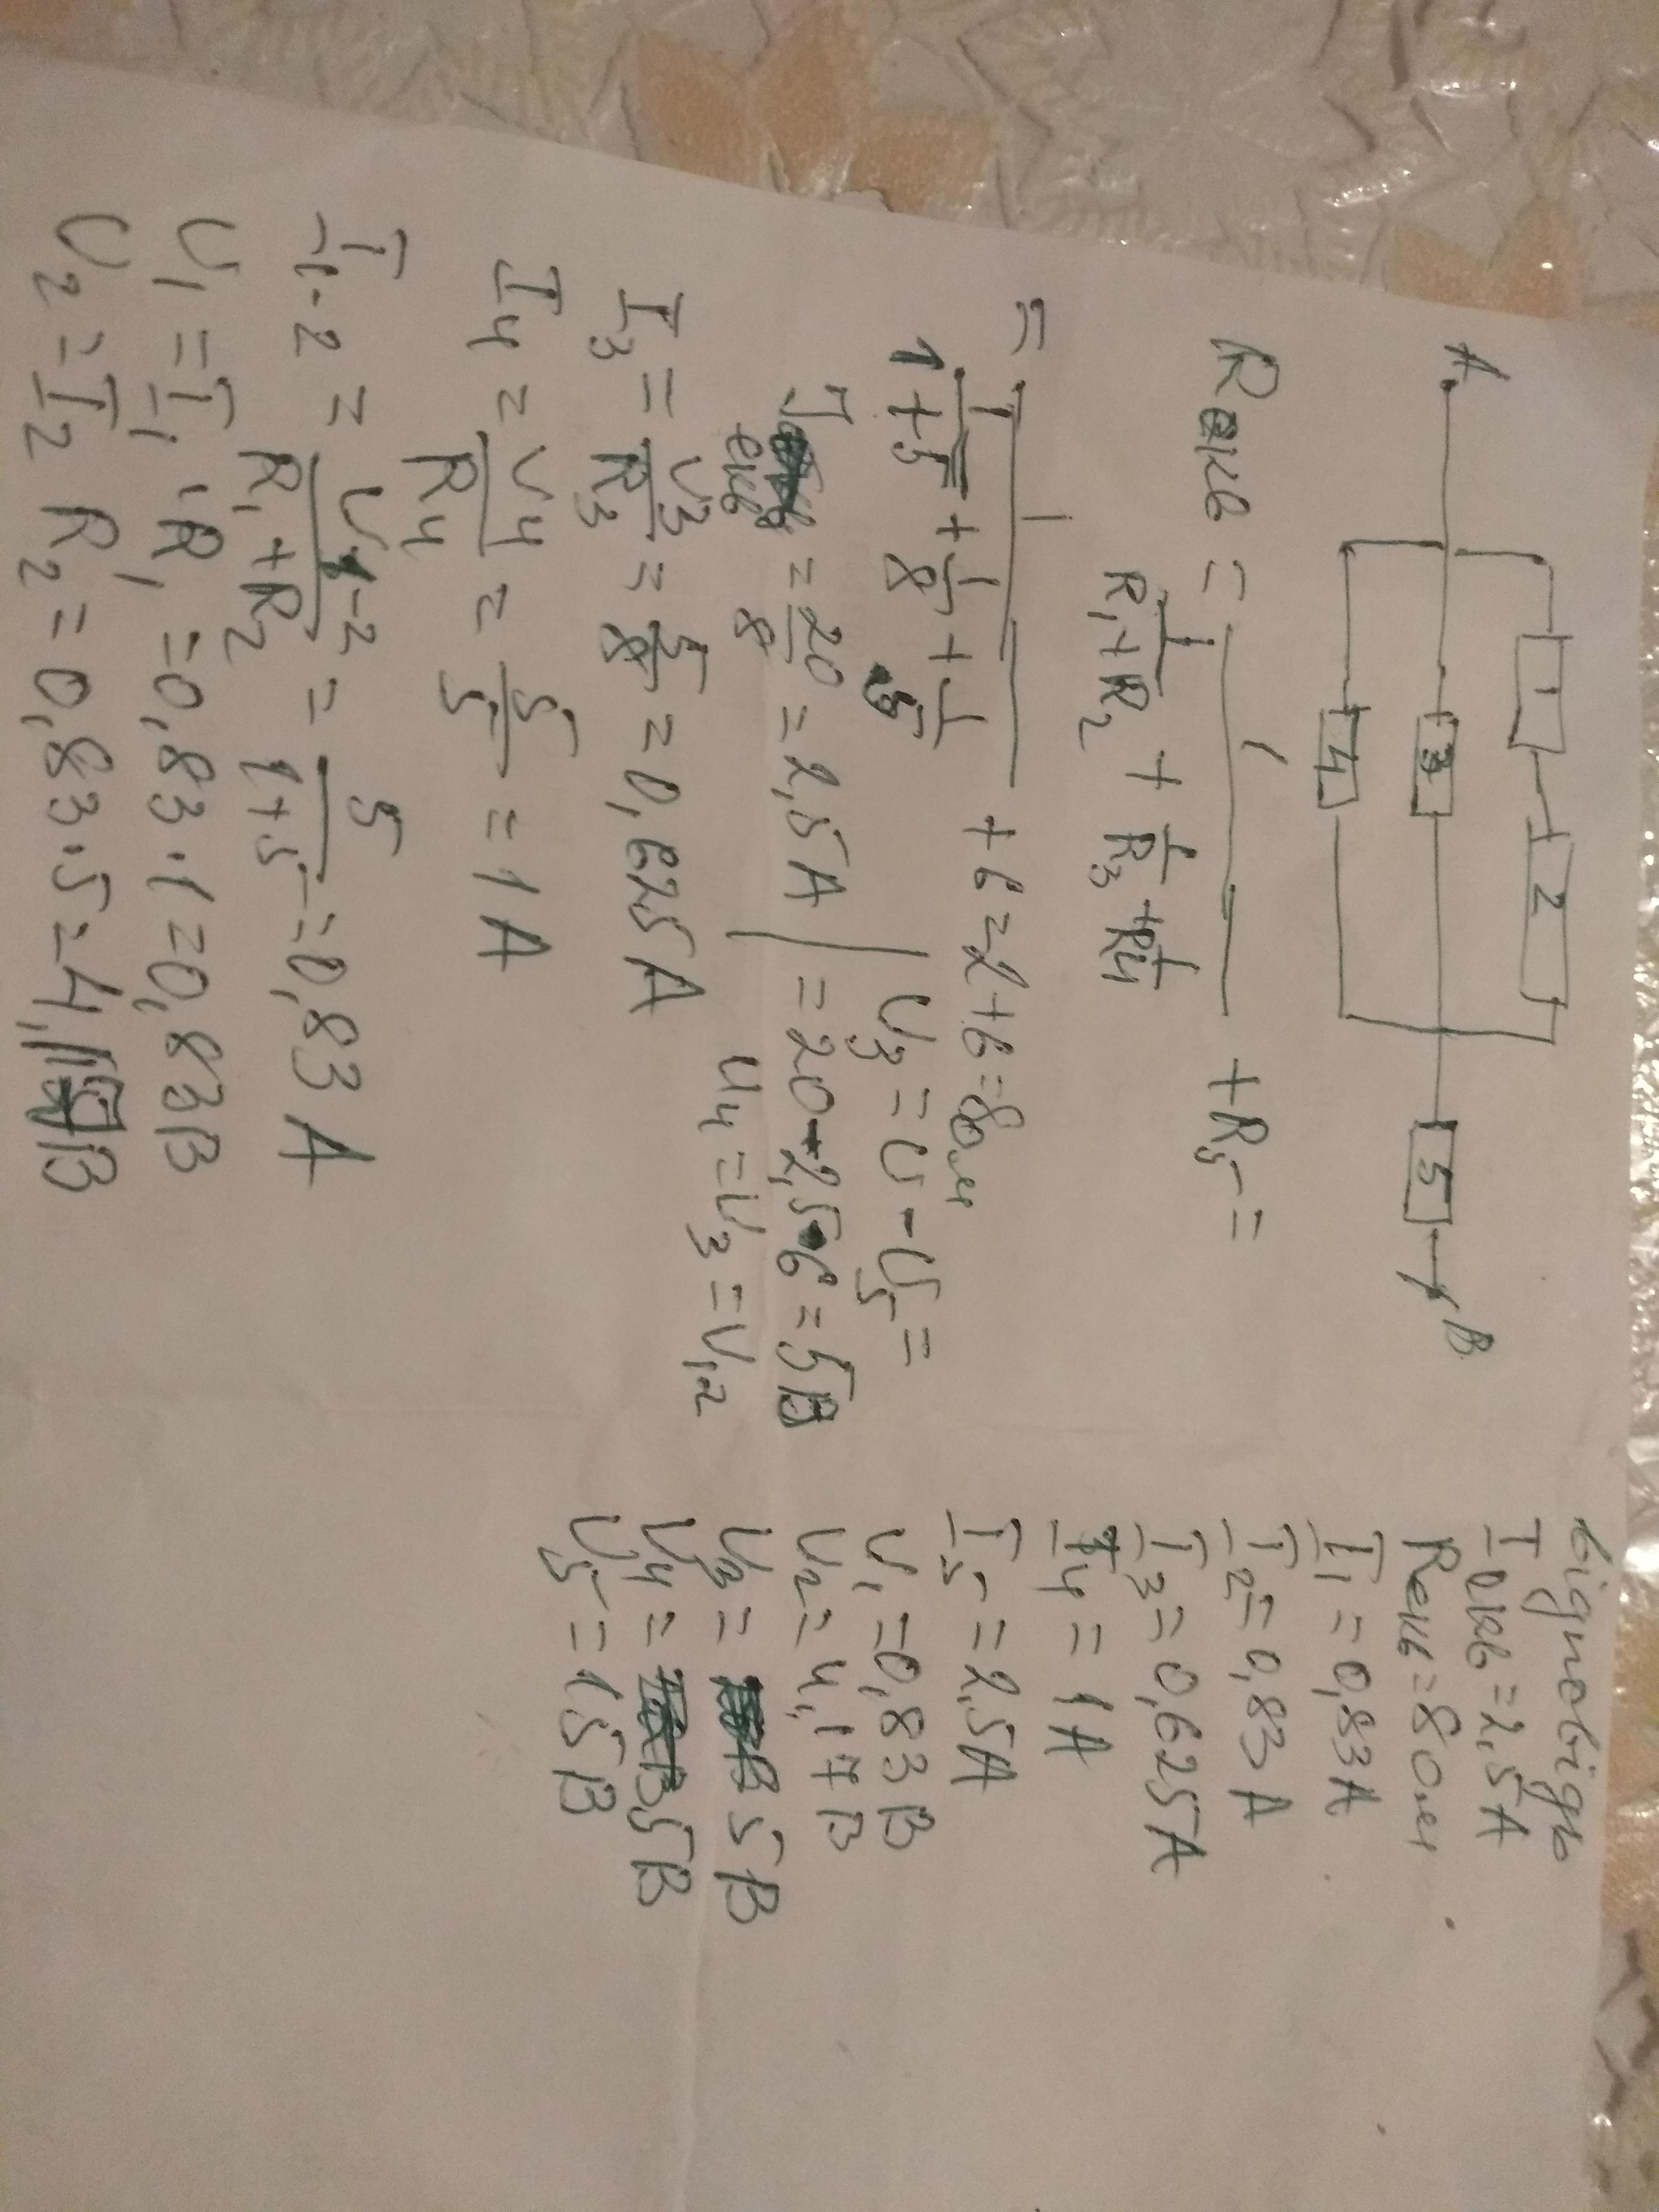 A
1
2
3
4
5
B
Rекв = 1 / (1/(R₁+R₂) + 1/R₃ + 1/R₄) + R₅ =
= 1 / (1/(1+5) + 1/8 + 1/5) + 6 = 2 + 6 = 8 Ом
Iекв = 20/8 = 2,5 A
U₃ = U - U₅ =
= 20 - 2,5·6 = 5 В
U₄ = U₃ = U₁,₂
I₃ = U₃/R₃ = 5/8 = 0,625 A
I₄ = U₄/R₄ = 5/5 = 1 A
I₁-₂ = U₁-₂/(R₁+R₂) = 5/(1+5) = 0,83 A
U₁ = I₁·R₁ = 0,83·1 = 0,83 В
U₂ = I₂ R₂ = 0,83·5 = 4,17 В
відповідь
Iекв = 2,5 A
Rекв = 8 Ом
I₁ = 0,83 A
I₂ = 0,83 A
I₃ = 0,625 A
I₄ = 1 A
I₅ = 2,5 A
U₁ = 0,83 В
U₂ = 4,17 В
U₃ = 5 В
U₄ = 5 В
U₅ = 15 В